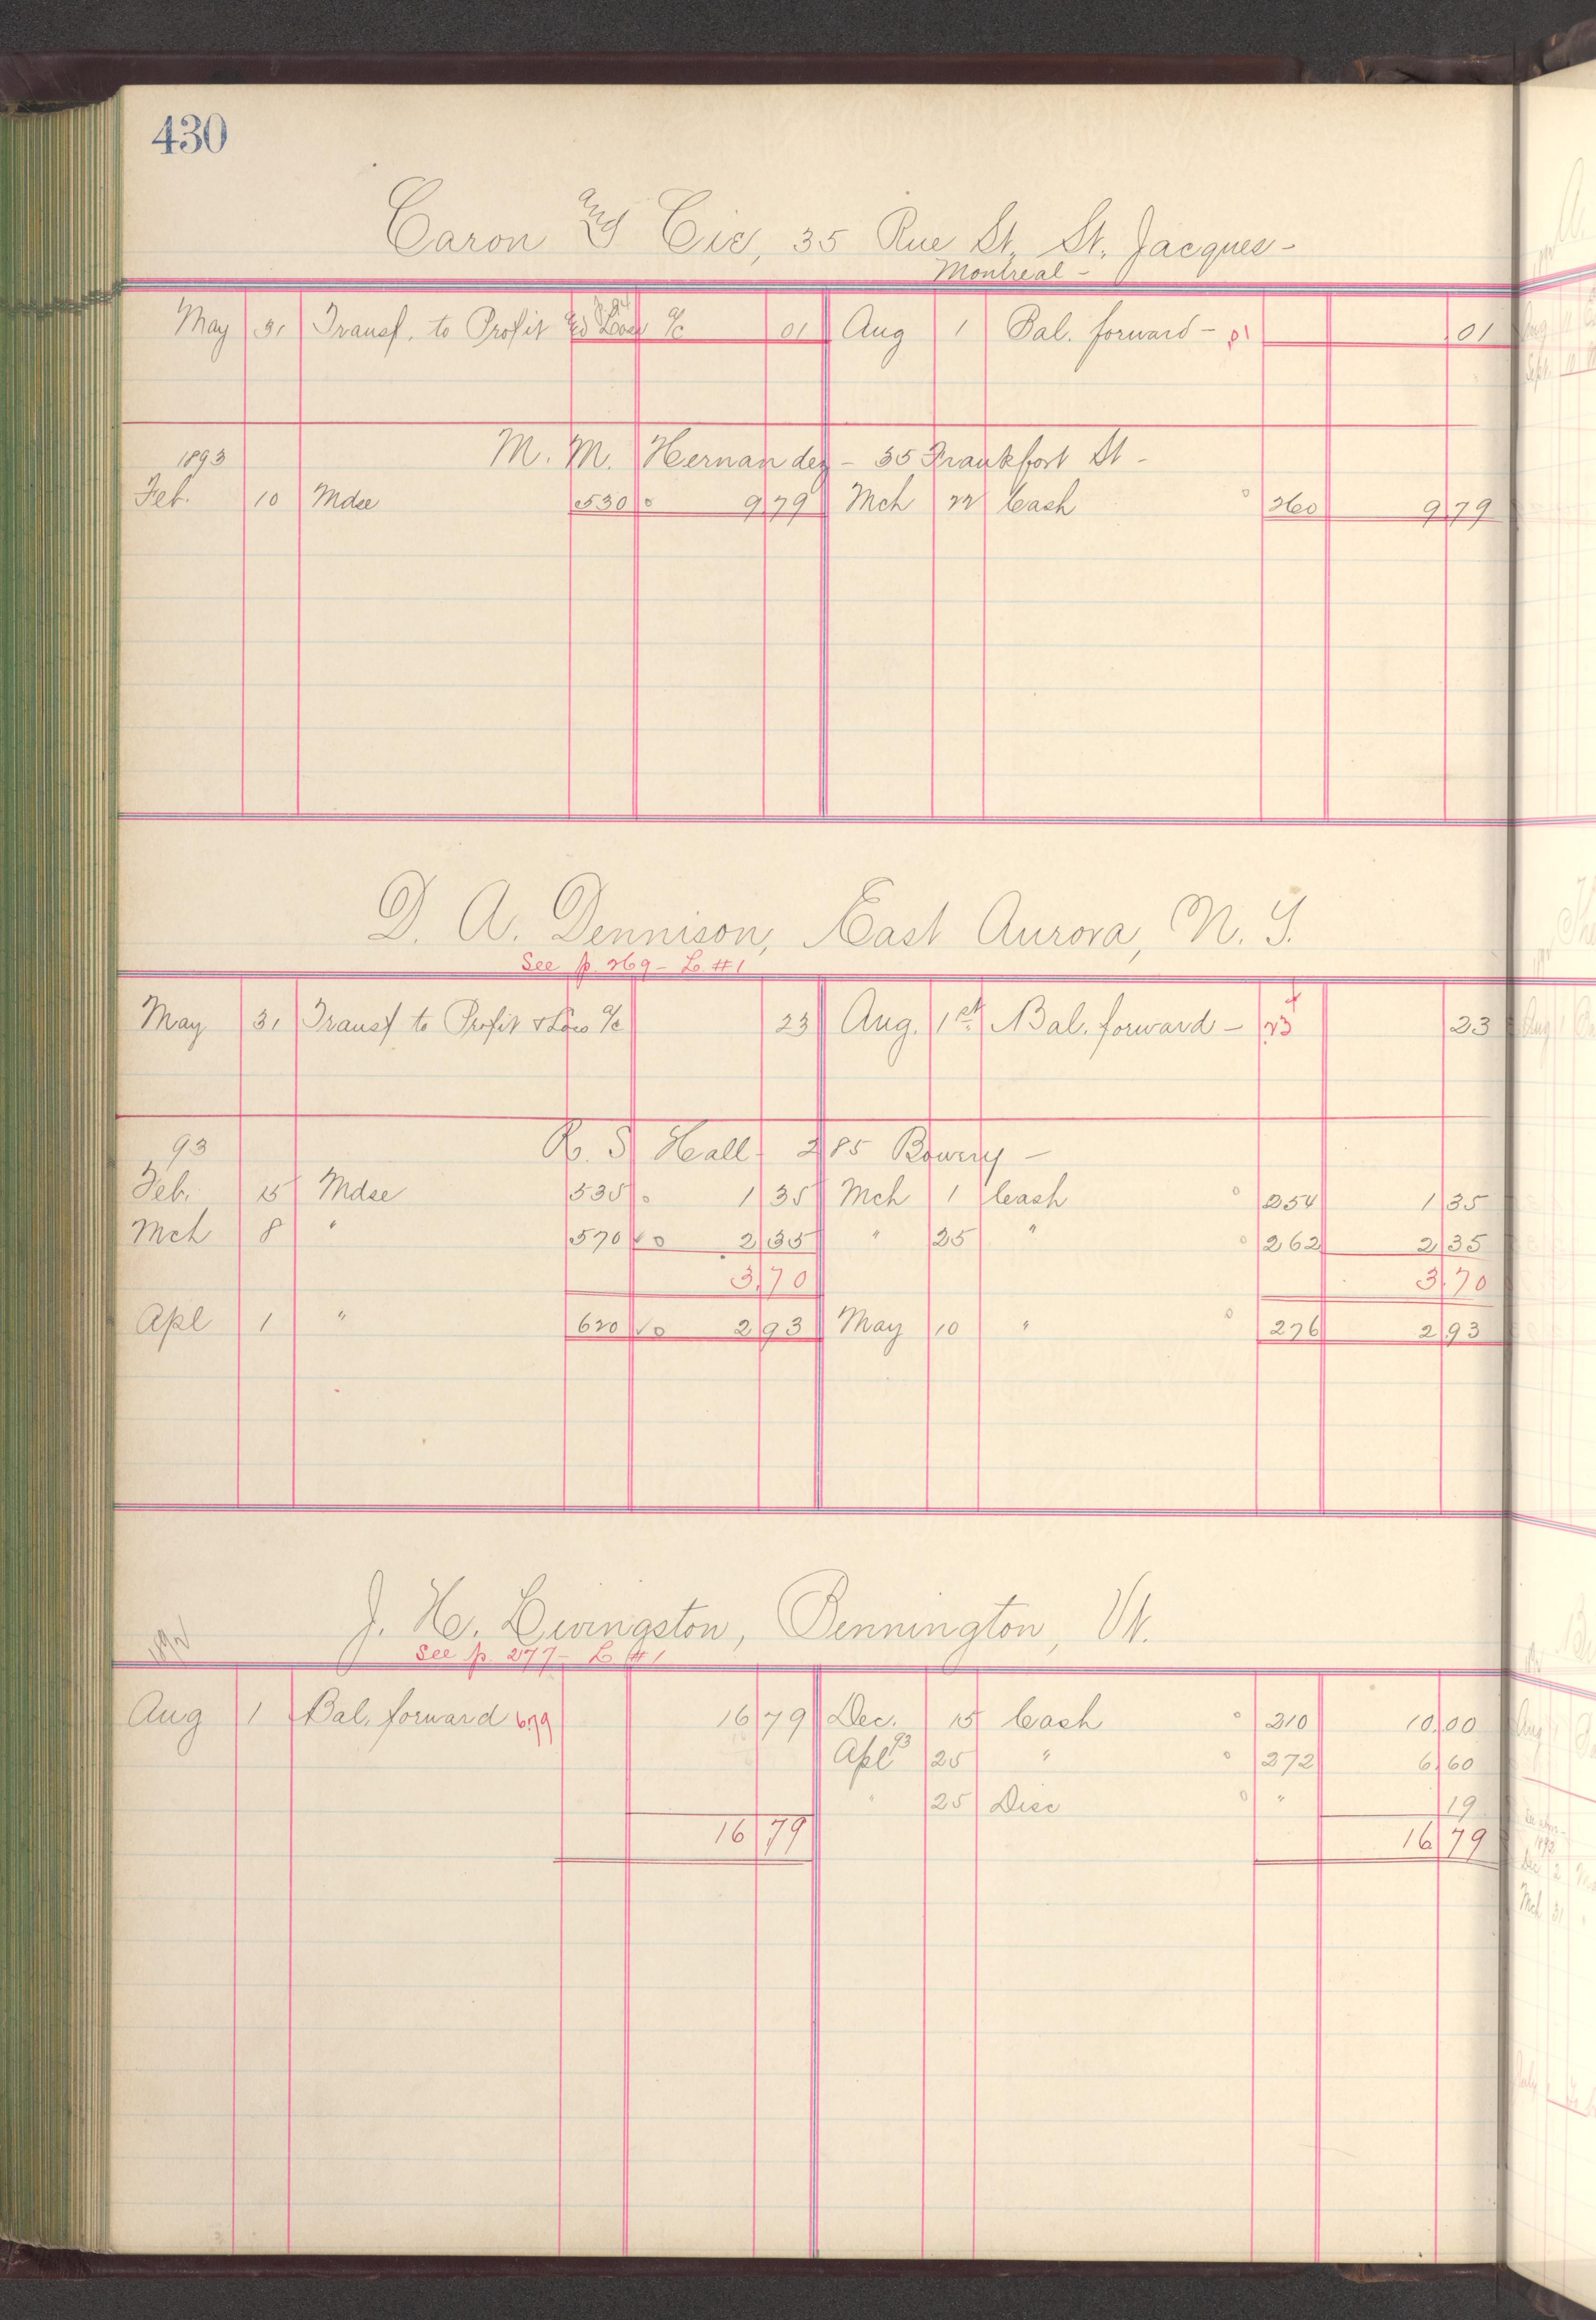 430
Caron and Cie, 35 Rue St. St. Jacques -
Montreal -
May 31 Transf. to Profit & Loss a/c 01 Aug 1 Bal. forward - 01 01
1893 M. M. Hernandez - 35 Frankfort St -
Feb. 10 Mdse 530 9 79 Mch 22 Cash 260 9 79
D. A. Dennison, East Aurora, N. Y.
See p. 269 - L. #1
May 31 Transf to Profit & Loss a/c 23 Aug. 1st Bal. forward - 23 23
93 R. S. Hall 285 Bowery -
Feb. 15 Mdse 535 1 35 Mch 1 Cash 254 1 35
Mch 8 " 570 2 35 " 25 " 262 2 35
3 70 3 70
Apl 1 " 620 2 93 May 10 " 276 2 93
J. H. Livingston, Bennington, Vt.
1892
See p. 277 - L #1
Aug 1 Bal. forward 679 16 79 Dec. 15 Cash 210 10 00
Apl 93 25 " 272 6 60
" 25 Disc " 19
16 79 16 79